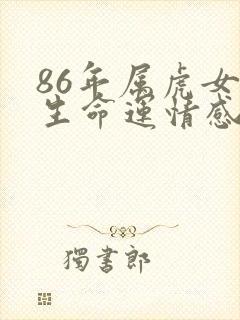 86年属虎女
生命运情感
獨書郎